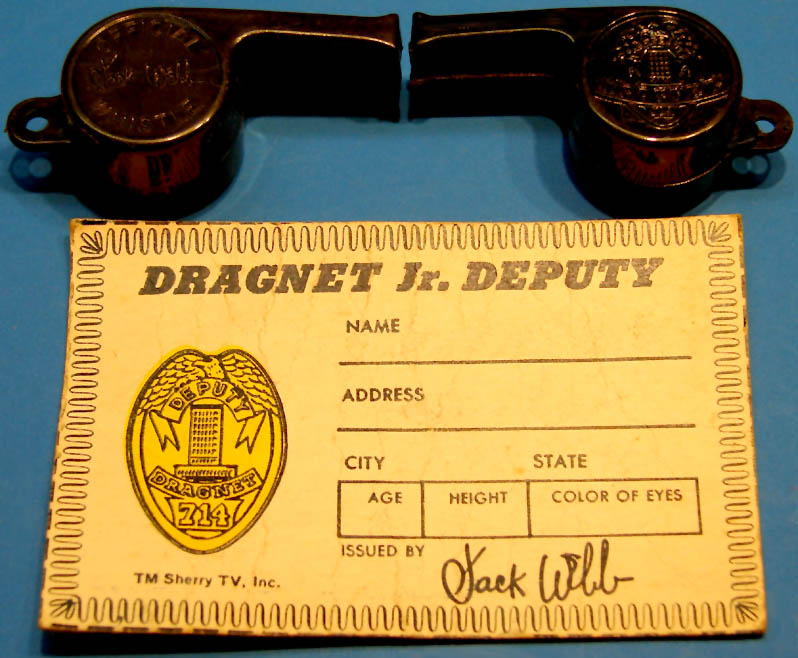 OFFICIAL
Jack Webb
WHISTLE
DRAGNET Jr. DEPUTY
NAME
ADDRESS
CITY STATE
AGE HEIGHT COLOR OF EYES
ISSUED BY Jack Webb
DEPUTY
DRAGNET
714
TM Sherry TV, Inc.